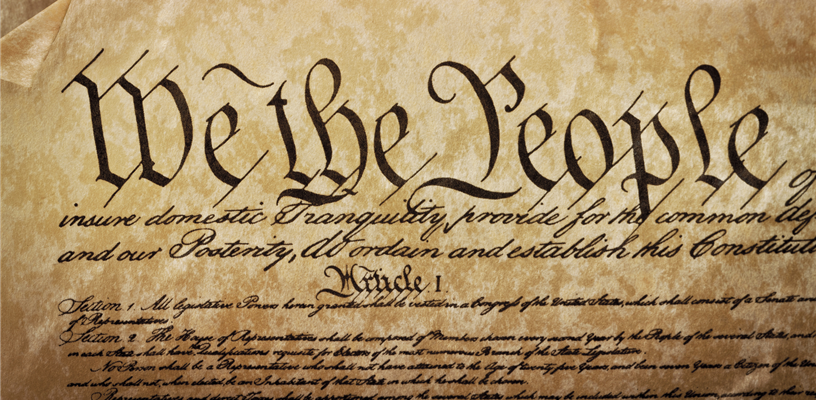 We the People of
insure domestic Tranquility, provide for the common def
and our Posterity, do ordain and establish this Constituti
Article I.
Section 1. All legislative Powers herein granted shall be vested in a Congress of the United States, which shall consist of a Senate and
of Representatives.
Section 2. The House of Representatives shall be composed of Members chosen every second Year by the People of the several States, and
in each State shall have Qualifications requisite for Electors of the most numerous Branch of the State Legislature.
No Person shall be a Representative who shall not have attained to the Age of twenty five Years, and been seven Years a Citizen of the Un
and who shall not, when elected, be an Inhabitant of that State in which he shall be chosen.
Representatives and direct Taxes shall be apportioned among the several States which may be included within this Union, according to their